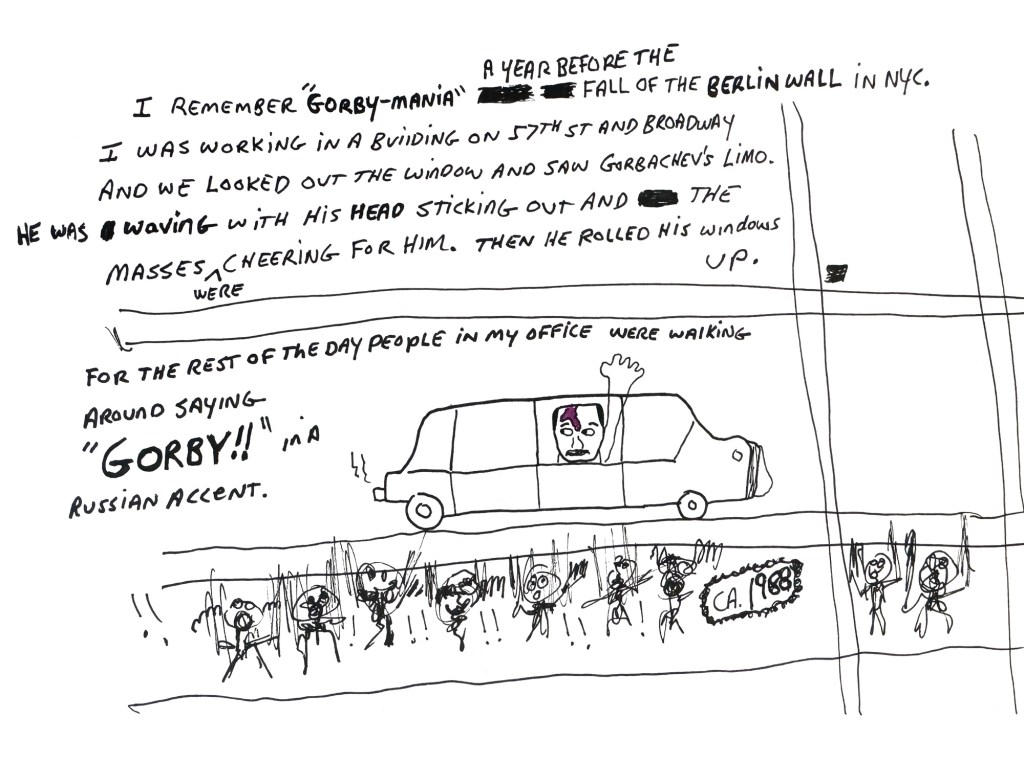 A YEAR BEFORE THE
I REMEMBER "GORBY-MANIA" FALL OF THE BERLIN WALL IN NYC.
I WAS WORKING IN A BUILDING ON 57TH ST AND BROADWAY
AND WE LOOKED OUT THE WINDOW AND SAW GORBACHEV'S LIMO.
HE WAS WAVING WITH HIS HEAD STICKING OUT AND THE
MASSES CHEERING FOR HIM. THEN HE ROLLED HIS WINDOWS
WERE
UP.
FOR THE REST OF THE DAY PEOPLE IN MY OFFICE WERE WALKING
AROUND SAYING
"GORBY!!" IN A
RUSSIAN ACCENT.
CA. 1988